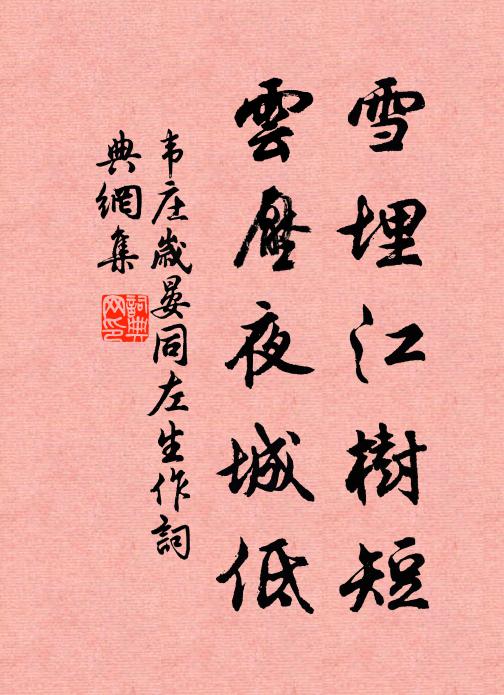 雪埋江樹短
雲壓夜城低
韦庄歲晏同左生作詞
典網集
詞典網印